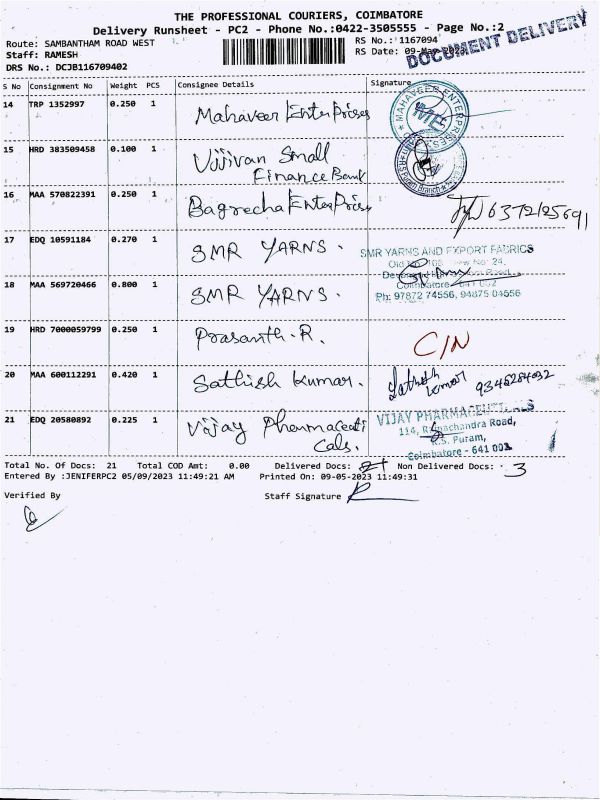 THE PROFESSIONAL COURIERS, COIMBATORE
Delivery Runsheet - PC2 - Phone No.:0422-3505555 - Page No.:2
Route: SAMBANTHAM ROAD WEST RS No.: 1167094
Staff: RAMESH RS Date: 09-May-2023
DRS No.: DCJB116709402
DOCUMENT DELIVERY
S No Consignment No Weight PCS Consignee Details Signature
14 TRP 1352997 0.250 1 Mahaveer Enterprises
MAHAVEER ENTERPRISES
15 HRD 383509458 0.100 1 Ujjivan Small
Finance Bank
16 MAA 570822391 0.250 1 Bagrecha Enterprises 6372125691
17 EDQ 10591184 0.270 1 SMR YARNS.
SMR YARNS AND EXPORT FABRICS
18 MAA 569720466 0.800 1 SMR YARNS.
Coimbatore - 641 002
Ph: 97872 74556, 94875 04556
19 HRD 7000059799 0.250 1 Prasanth.R. C/N
20 MAA 600112291 0.420 1 Sathish Kumar. Sathish Kumar
21 EDQ 20580892 0.225 1 Vijay Pharmaceuti
cals.
VIJAY PHARMACEUTICALS
114, Ramachandra Road,
R.S. Puram,
Coimbatore - 641 002
Total No. Of Docs: 21 Total COD Amt: 0.00 Delivered Docs: Non Delivered Docs: 3
Entered By :JENIFERPC2 05/09/2023 11:49:21 AM Printed On: 09-05-2023 11:49:31
Verified By Staff Signature